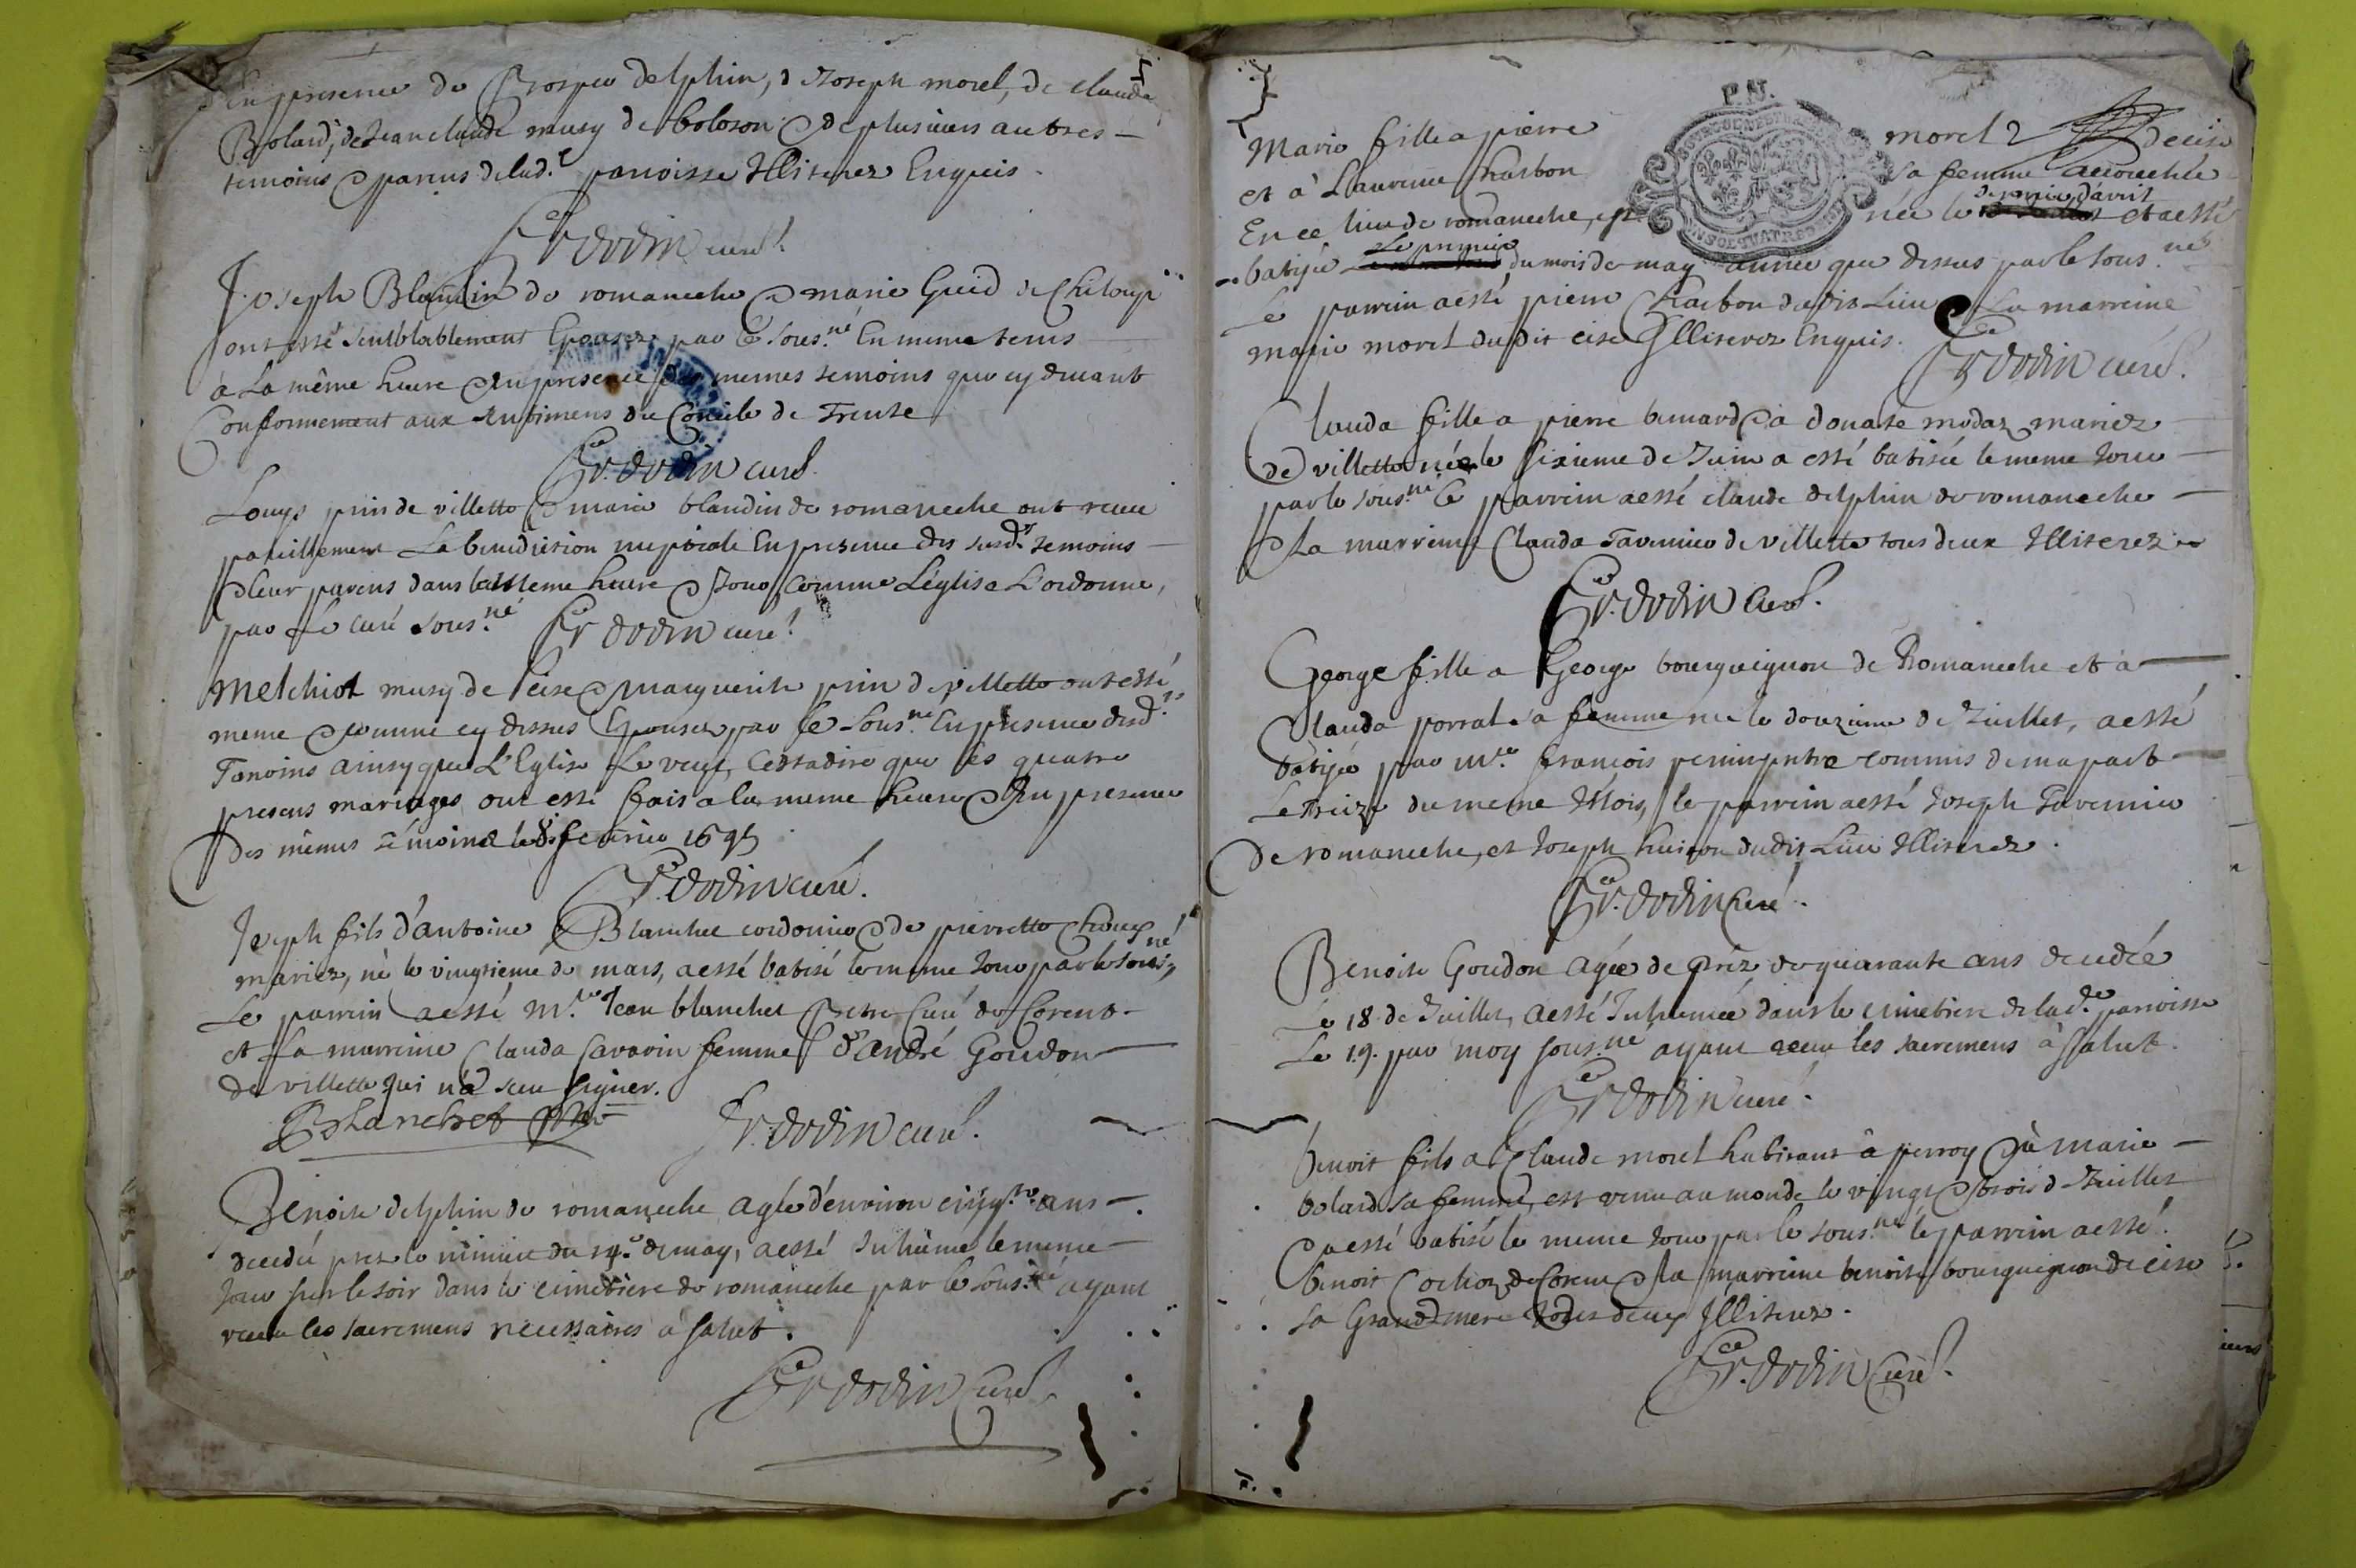 En presence de Prosper delphin, d Joseph morel, de claude
Bolard, de Jean claude musy de boloson & de plusieurs autres
temoins & parens de lad.e parroisse Illiterez Enquis.
Fr dodin curé.
Joseph Blandin de romaneche & marie Guid de Chiloup
ont esté semblablement Epousez par le sous.né En meme tems
à La même heure & En presence des memes temoins que cy devant
Conformement aux du Concile de Trente
Fr. dodin curé.
Louys prin de villette & marie blandin de romaneche ont receu
pareillement La benediction nuptiale En presence des susd.s temoins
& leur parens dans la meme heure & Jour, comme L'église L'ordonne,
par Le curé sous.né Fr dodin curé.
Melchiot musy de Cise & Marguerite prin de villette ont esté
meme & comme cy dessus Epousez par le Sous.né En presence desd.s
Temoins ainsy que L'Eglise Le veut, Cestadire que les quatre
presens mariages ont esté fais a la meme heure & En presence
des mêmes témoins le fevrier 169
Fr. dodin curé.
Joseph fils d'antoine Blanchet cordonier & de pierrette
mariez, né le vingtieme de mars, a esté batisé le meme Jour par le sous.né,
Le parrein a esté M.re Jean blanchet Pretre Curé de Corent
et La marreine Clauda savarin femme d'André Goudon
de villette qui n'a sceu signer.
Blanchet ptre
Fr. dodin curé.
Benoite delphin de romaneche agée d'environ ans
decedée prez le minuit du 14.e de may, a esté Inhumé le meme
Jour sur le soir dans le cimetiere de romaneche par le sous.né ayant
receu les sacremens necessaires à salut.
Fr dodin Curé.
P.N.
Marie fille a pierre morel decise
et à Laurence Charbon sa femme accouchée
En ce lieu de romaneche, née le dernier d'avril et a esté
batisée Le premier du mois de may année que dessus par le sous.né
Le parrein a esté pierre Charbon dudit Lieu & La marreine
marie morel dudit cise Illiterez Enquis.
Fr dodin curé.
Clauda fille a pierre benard & à donate modaz mariez
de villette née le sixieme de Juin a esté batisée le meme Jour
par le sous.né le parrein a esté claude delphin de romaneche
& La marreine Clauda Tavernier de villette tous deux Illiterez
Fr. dodin Curé.
George fille a George bourguignon de Romaneche et à
Clauda porral sa femme née le douzieme de Juillet, a esté
batisée par M.re françois prtre commis de ma part
Le treize du meme Mois, le parrein a esté Joseph Tavernier
de romaneche, et Joseph dudit Lieu Illiterez.
Fr. dodin Curé.
Benoite Goudon agée de prez de quarante ans decedée
Le 18 de Juillet, a esté Inhumée dans le cimetiere de lad.e parroisse
Le 19. par moy sous.né ayant receu les sacremens à salut.
Fr dodin curé.
benoit fils a Claude morel habitant à perroy & à marie
bolard sa femme, est venu au monde le vingt & trois d Juillet
& a esté batisé le meme Jour par le sous.né le parrein a esté
benoit Cochoz de Corent & la marreine benoite bourguignon de cise
sa Grand mere tous deux Illiterez.
Fr. dodin Curé.